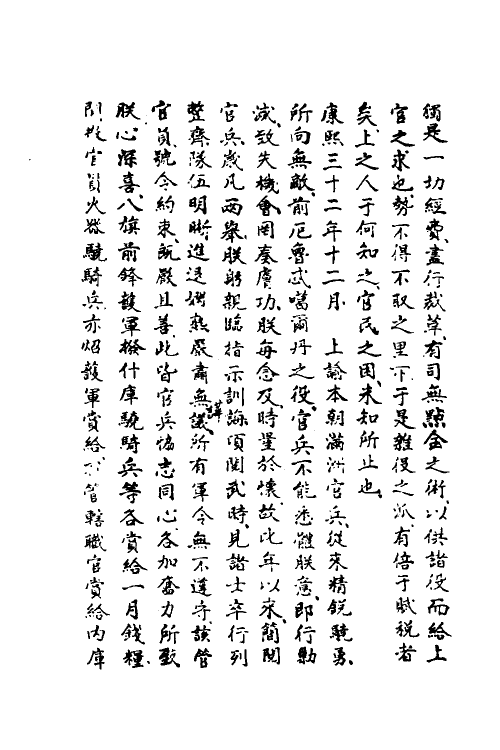 獨是一切經費盡行裁革有司無點金之術以供諸役而給上
官之求也勢不得不取之里下于是雜役之派有倍于賦稅者
矣上之人于何知之官民之困未知所止也
康熙三十二年十二月 上諭本朝滿洲官兵從來精銳驍勇
所向無敵前厄魯忒噶爾丹之役官兵不能悉體朕意即行勦
滅致失機會罔奏膚功朕每念及時置於懷故比年以來簡閱
官兵歲凡兩舉朕躬親臨指示訓誨頃閱武時見諸士卒行列
整齊隊伍明晰進退嫻熟嚴肅無譁所有軍令無不遵守該管
官員號令約束既嚴且善此皆官兵協志同心各加奮力所致
朕心深喜八旗前鋒護軍撥什庫驍騎兵等各賞給一月錢糧
官員火器驍騎兵亦炤護軍賞給其管轄職官賞給內庫